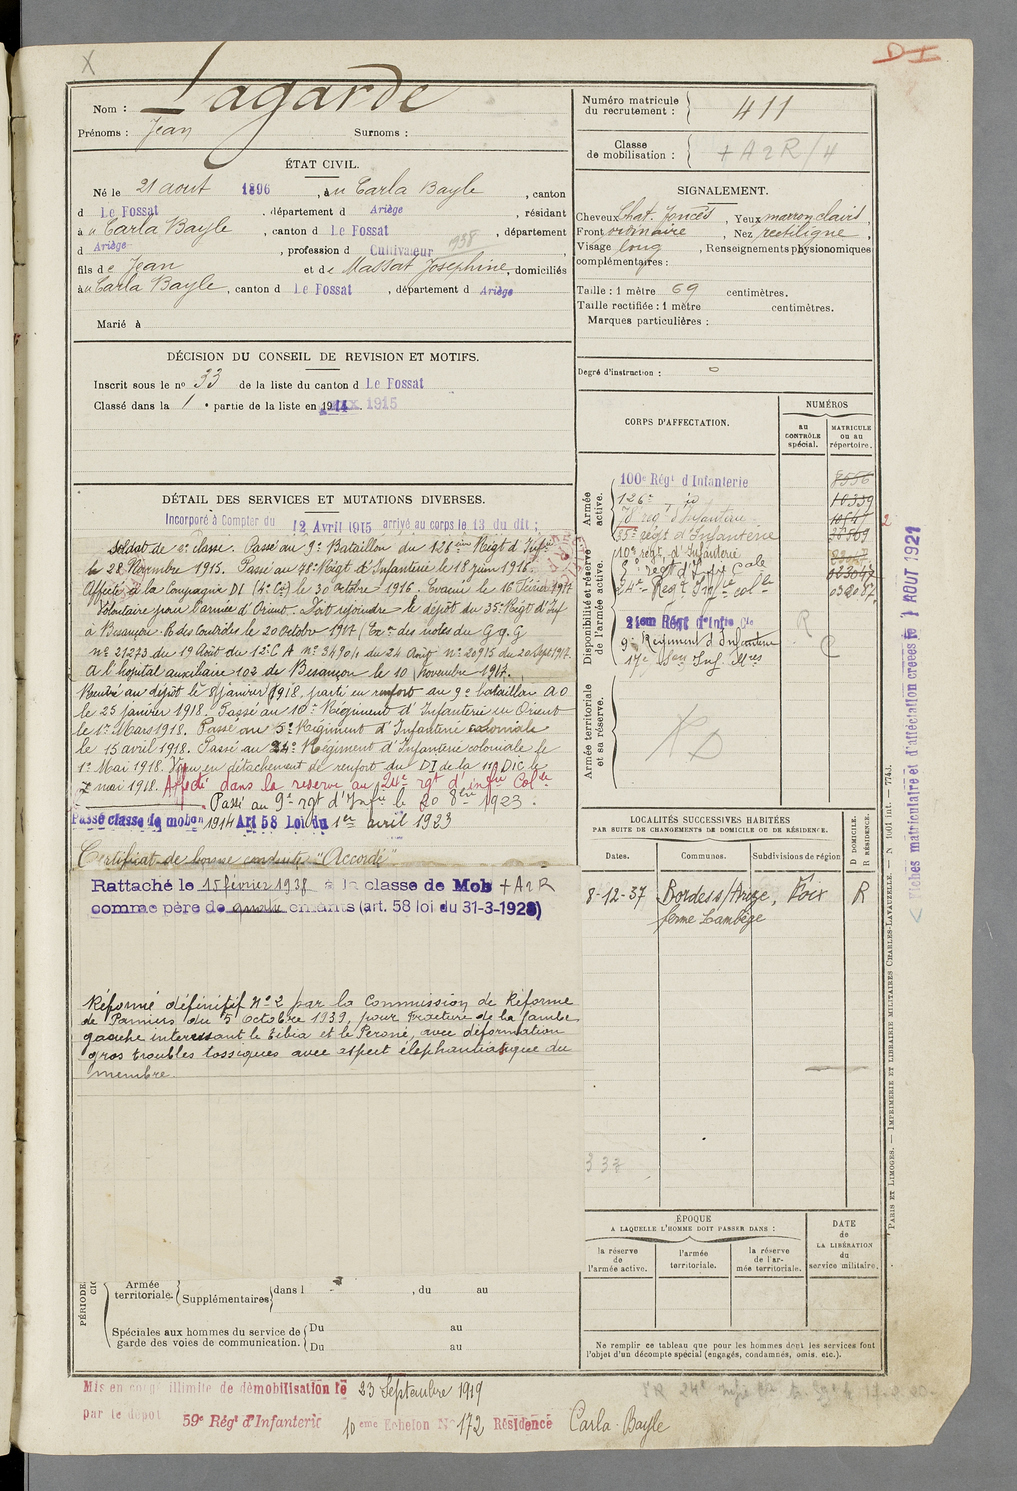 X
D I
Nom : Lagarde
Prénoms : Jean Surnoms :
ÉTAT CIVIL.
Né le 21 aout 1896, à u Carla Bayle, canton
d Le Fossat, département d Ariège, résidant
à u Carla Bayle, canton d Le Fossat, département
d Ariège, profession d Cultivateur 938
fils de Jean et de Massat Joséphine, domiciliés
à u Carla Bayle, canton d Le Fossat, département d Ariège
Marié à
DÉCISION DU CONSEIL DE REVISION ET MOTIFS.
Inscrit sous le nº 33 de la liste du canton d Le Fossat
Classé dans la 1 e partie de la liste en 1914 1915
DÉTAIL DES SERVICES ET MUTATIONS DIVERSES.
Incorporé à Compter du 12 Avril 1915 arrivé au corps le 13 du dit ;
Soldat de 2e classe. Passé au 9e Bataillon du 126ème Régt d'Infrie
le 28 Novembre 1915. Passé au 78e Régt d'Infanterie le 18 juin 1916.
Affecté à la Compagnie DI (4e Cie) le 30 octobre 1916. Evacué le 16 Février 1917
Volontaire pour l'armée d'Orient. Doit rejoindre le dépôt du 35e Régt d'Inf
à Besançon. R des Contrôles le 20 octobre 1917 (Ex on des notes du G.Q.G
nº 21273 du 19 Août du 12e C A nº 3490/1 du 24 Août nº 20915 du 20 Sept 1917.
A l'hopital auxiliaire 103 de Besançon le 10 Novembre 1917.
Rentré au dépôt le 8 janvier 1918. parti en renfort au 9e bataillon A O
le 25 janvier 1918. Passé au 10e Régiment d'Infanterie en Orient
le 1er Mars 1918. Passé au 5e Régiment d'Infanterie coloniale
le 15 avril 1918. Passé au 24e Régiment d'Infanterie coloniale le
1er Mai 1918. Venu en détachement de renfort du DI de la 11e DIC le
7 mai 1918. Affecté dans la reserve au 24e rgt d'infie Colle
Passé au 9e rgt d'Infie le 20 8bre 1923.
Passé classe de mobon 1914 Art 58 Loi du 1er avril 1923
Certificat de bonne conduite "Accordé"
Rattaché le 15 février 1938 à la classe de Mob + A 2 R
comme père de quatre enfants (art. 58 loi du 31-3-1928)
Réformé définitif Nº 2 par la Commission de Réforme
de Pamiers du 5 octobre 1939, pour Fracture de la jambe
gauche interessant le tibia et le Peroné, avec déformation
gros troubles tossiques avec aspect éléphantiasique du
membre.
PÉRIODE
Armée territoriale. Supplémentaires dans l , du au
Spéciales aux hommes du service de garde des voies de communication. Du au
Du au
Mis en congé illimité de démobilisation le 23 Septembre 1919
par le dépôt 59e Régt d'Infanterie 10 eme Echelon Nº 172 Résidence Carla-Bayle
Numéro matricule du recrutement : 411
Classe de mobilisation : + A 2 R / 4
SIGNALEMENT.
Cheveux Chat. foncés, Yeux marron clairs,
Front ordinaire, Nez rectiligne,
Visage long, Renseignements physionomiques
complémentaires :
Taille : 1 mètre 69 centimètres.
Taille rectifiée : 1 mètre centimètres.
Marques particulières :
Degré d'instruction : 0
CORPS D'AFFECTATION.
NUMÉROS
au CONTRÔLE spécial.
MATRICULE ou au répertoire.
Armée active.
100e Régt d'Infanterie 8556
126e id 10339
78 regt d'Infanterie
35e regt d'Infanterie
Disponibilité et réserve de l'armée active.
10e regt. d'Infanterie
5e regt d'Infie Cole
24e Regt Infie colle
21em Régt d'Infie Cle R
9e Régiment d'Infanterie C
17e Son Inf. Mres
Armée territoriale et sa réserve.
LOCALITÉS SUCCESSIVES HABITÉES
PAR SUITE DE CHANGEMENTS DE DOMICILE OU DE RÉSIDENCE.
Dates. Communes. Subdivisions de région D DOMICILE. R RÉSIDENCE.
8-12-37 Bordes s/Arize, Foix R
ferme Lambège
337
ÉPOQUE
A LAQUELLE L'HOMME DOIT PASSER DANS :
la réserve de l'armée active.
l'armée territoriale.
la réserve de l'armée territoriale.
DATE de LA LIBÉRATION du service militaire.
Ne remplir ce tableau que pour les hommes dont les services font
l'objet d'un décompte spécial (engagés, condamnés, omis, etc.).
PARIS ET LIMOGES. — IMPRIMERIE ET LIBRAIRIE MILITAIRES CHARLES-LAVAUZELLE. — N 1001 int. — 7743.
< Fiches matriculaire et d'affectation créées le 1 AOUT 1921